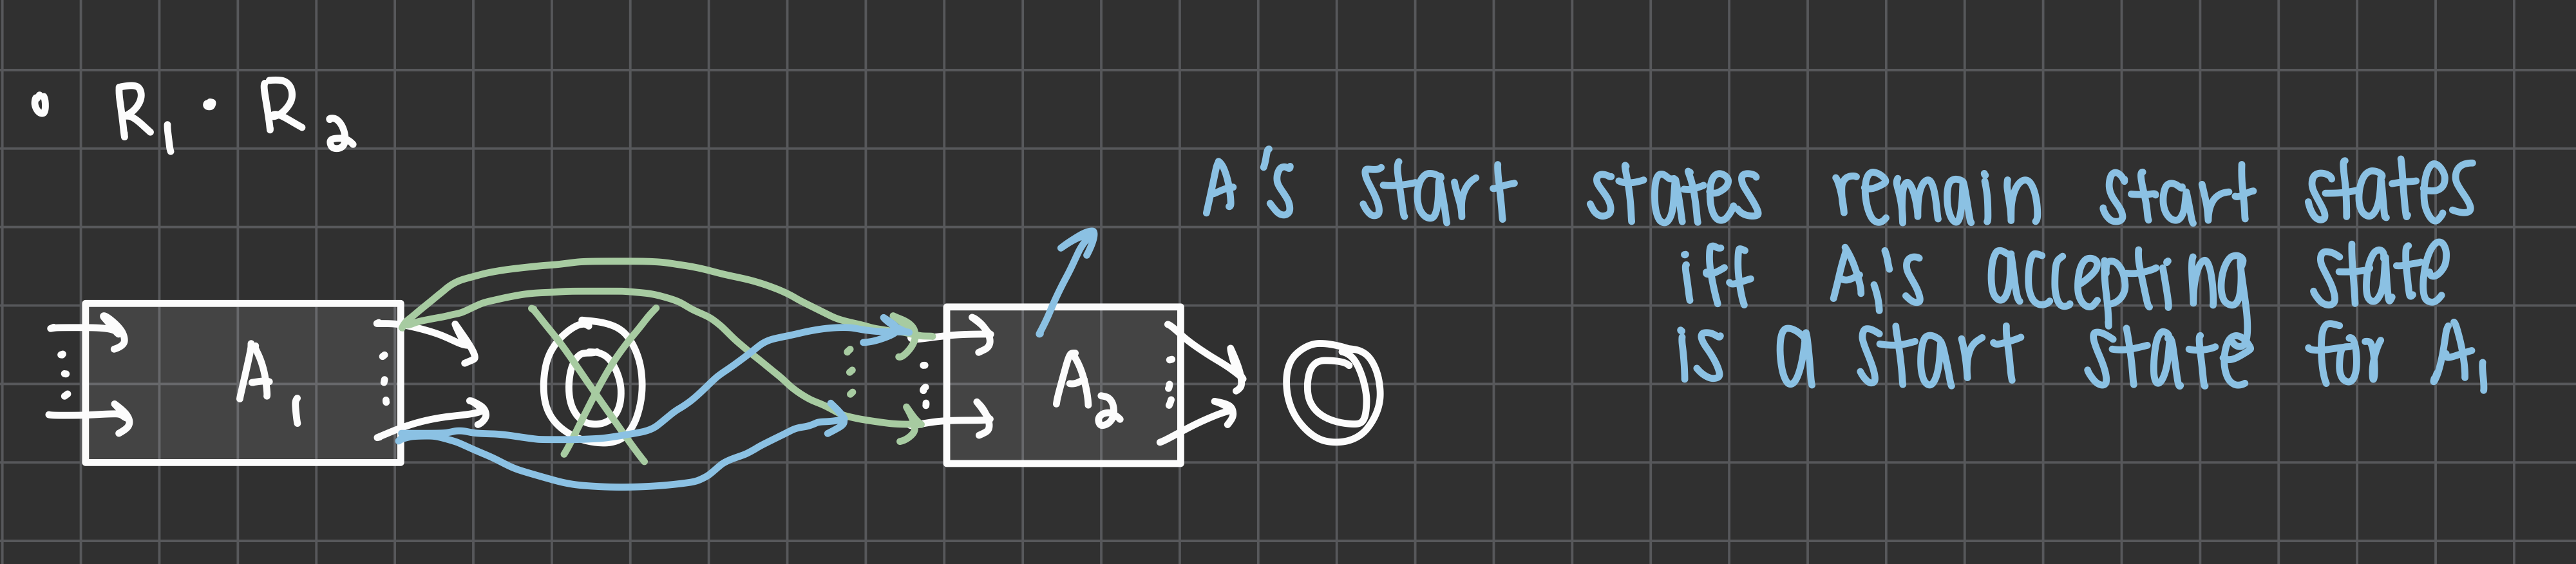 ◦ R₁ · R₂
A's start states remain start states
iff A₁'s accepting state
is a start state for A₁
A₁
A₂